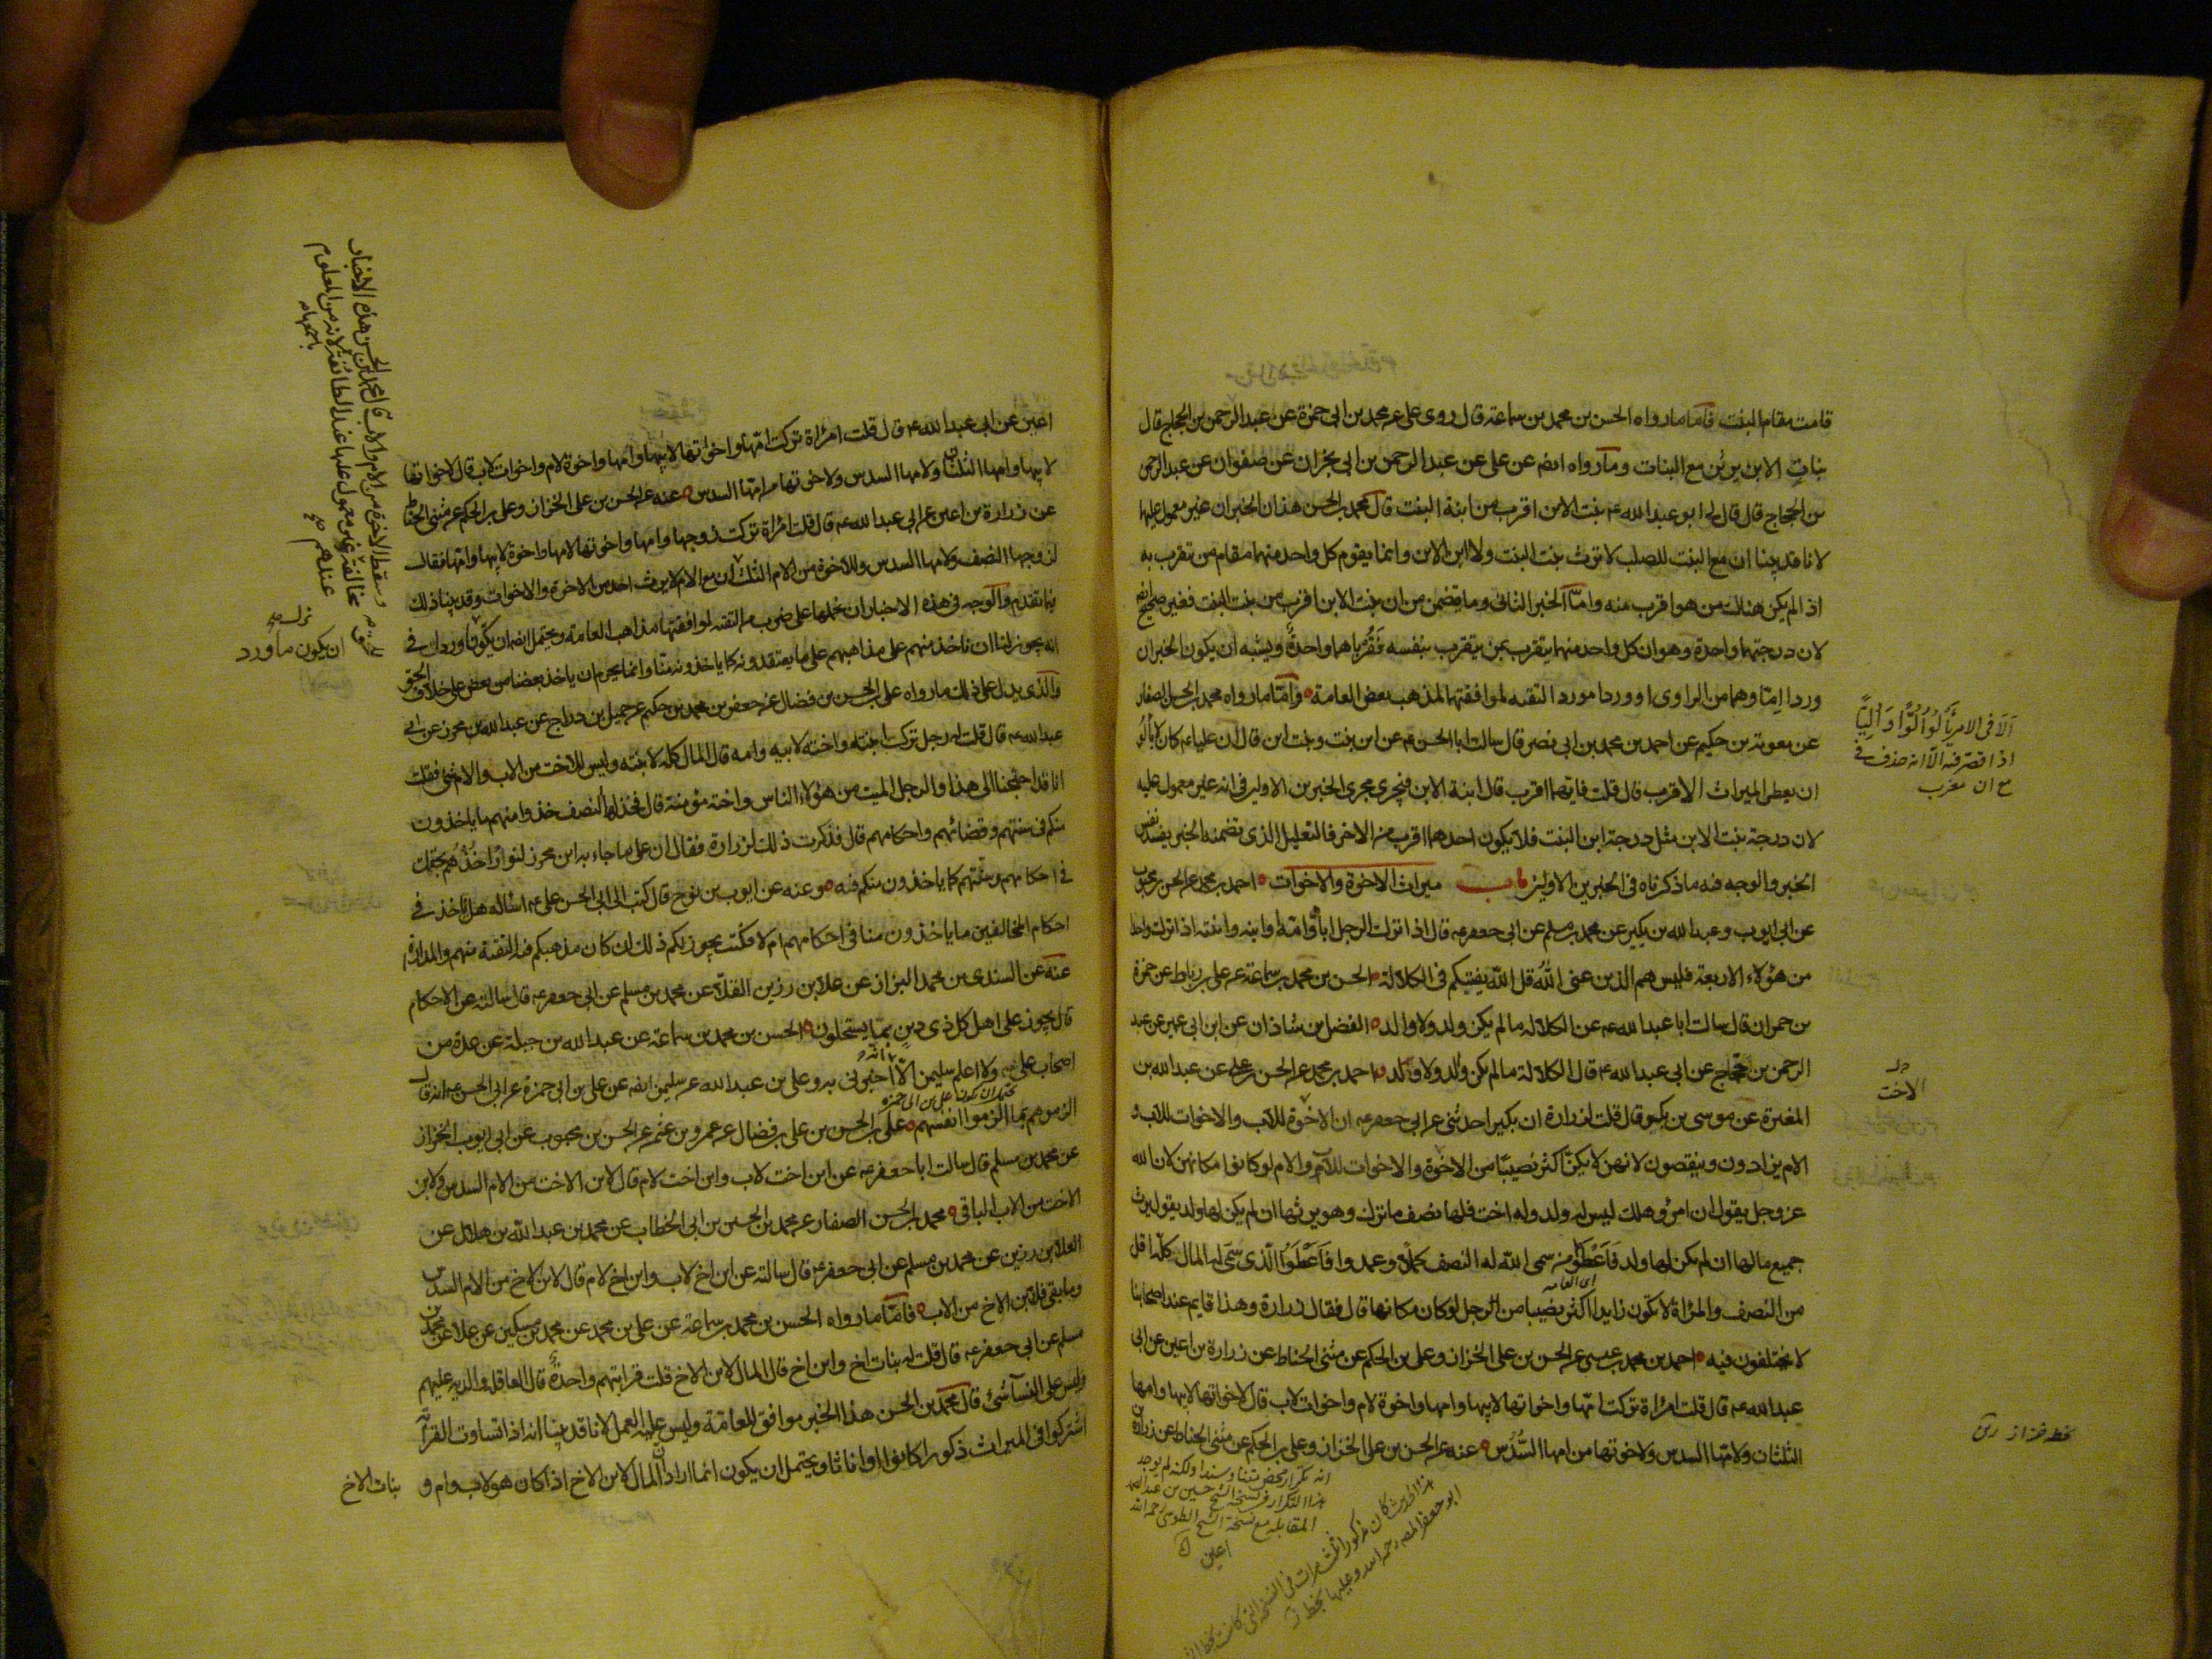 قامت مقام البنت فاما ما رواه الحسن بن محمد بن سماعة قال روى على عن محمد بن ابى حمزة عن عبد الرحمن بن الحجاج قال
بنات الابن يرثن مع البنات وما رواه ايضا عن على عن عبد الرحمن بن ابى نجران عن صفوان عن عبد الرحمن
بن الحجاج قال قال لى ابو عبد الله ع بنت الابن اقرب من ابنة البنت قال محمد بن الحسن هذان الخبران غير معمول عليهما
لانا قد بينا ان مع البنت للصلب لا ترث بنت البنت ولا ابن الابن وانما يقوم كل واحد منهما مقام من يتقرب به
اذا لم يكن هناك من هو اقرب منه واما الخبر الثانى وما تضمن من ان بنت الابن اقرب من بنت البنت فغير صحيح ايضا
لان درجتهما واحدة وهو ان كل واحد منهما يتقرب بمن يتقرب بنفسه فقرباهما واحدة ويشبه ان يكون الخبران
وردا اما وهما من الراوى او وردا مورد التقية لموافقتهما لمذهب بعض العامة واما ما رواه محمد بن الحسن الصفار
عن معوية بن حكيم عن احمد بن محمد بن ابى نصر قال سالت ابا الحسن ع عن ابن بنت وبنت ابن قال ان عليا ع كان لا يألو
ان يعطى الميراث الاقرب قال قلت فايهما اقرب قال ابنة الابن فيجرى مجرى الخبرين الاولين فى انه غير معمول عليه
لان درجة بنت الابن مثل درجة ابن البنت فلا يكون احدهما اقرب من الاخر فالتعليل الذى تضمنه الخبر يفسد نفس
الخبر والوجه فيه ما ذكرناه فى الخبرين الاولين باب ميراث الاخوة والاخوات احمد بن محمد عن الحسن بن محبوب
عن ابى ايوب وعبد الله بن بكير عن محمد بن مسلم عن ابى جعفر ع قال اذا ترك الرجل اباه وامه او ابنه وابنته اذا ترك واحدا
من هؤلاء الاربعة فليس هم الذين عنى الله قل الله يفتيكم فى الكلالة الحسن بن محمد بن سماعة عن على بن رباط عن حمزة
بن حمران قال سالت ابا عبد الله ع عن الكلالة ما لم يكن ولد ولا والد الفضل بن شاذان عن ابن ابى عمير عن عبد
الرحمن بن حجاج عن ابى عبد الله ع قال الكلالة ما لم يكن ولد ولا والد احمد بن محمد عن الحسن بن على عن عبد الله بن
المغيرة عن موسى بن بكر قال قلت لزرارة ان بكيرا حدثنى عن ابى جعفر ع ان الاخوة للاب والاخوات للاب و
الام يزادون وينقصون لانهن لا يكن اكثر نصيبا من الاخوة والاخوات للاب والام لو كانوا مكانهن لان الله
عز وجل يقول ان امرؤ هلك ليس له ولد وله اخت فلها نصف ما ترك وهو يرثها ان لم يكن لها ولد يقول يرث
جميع مالها ان لم يكن لها ولد فاعطوا من سمى الله له النصف كملا وعمدوا فاعطوا الذى سمى له المال كله اقل
من النصف والمراة لا تكون زايدا اكثر نصيبا من الرجل لو كان مكانها قال فقال زرارة وهذا قايم عند اصحابنا
اى العامه
لا يختلفون فيه احمد بن محمد بن عيسى عن الحسن بن على الخزاز وعلى بن الحكم عن مثنى الحناط عن زرارة بن اعين عن ابى
عبد الله ع قال قلت امراة تركت امها واخواتها لابيها وامها واخوة لام واخوات لاب قال لاخواتها لابيها وامها
الثلثان ولامها السدس ولاخوتها من امها السدس عنه عن الحسن بن على الخزاز وعلى بن الحكم عن مثنى الحناط عن زرارة بن
الا فى الامر يألو ألوا وأليا
اذا قصر فيه الا انه حذف فى
مع ان معرب
الاخت
انه تكرار محض متنا وسندا ولكنه لم يوجد
هذا التكرار فى نسخة الشيخ حسين بن عبد الصمد
المقابله مع نسخة الشيخ الطوسى رحمه الله
اعين
هذا الحديث كان مذكورا ثلث مرات فى النسخة التى كانت بخط
ابو جعفر المصنف رحمه الله وعليها بخط
اعين عن ابى عبد الله ع قال قلت امراة تركت امها واخواتها لابيها وامها واخوة لام واخوات لاب قال لاخواتها
لابيها وامها الثلثان ولامها السدس ولاخوتها من امها السدس عنه عن الحسن بن على الخزاز وعلى بن الحكم عن مثنى الحناط
عن زرارة بن اعين عن ابى عبد الله ع قال قلت امراة تركت زوجها وامها واخوتها لامها واخوة لابيها وامها فقال
لزوجها النصف ولامها السدس وللاخوة من الام الثلث ان مع الام لا يرث احد من الاخوة والاخوات وقد بينا ذلك
فيما تقدم والوجه فى هذه الاخبار ان نحملها على ضرب من التقية لموافقتها مذاهب العامة ويحتمل ايضا ان يكون ما ورد فى
انه يجوز لنا ان ناخذ منهم على مذاهبهم على ما يعتقدونه كما ياخذونه منا وانما يحرم ان ياخذ بعضنا من بعض على خلاف الحق
والذى يدل على ذلك ما رواه على بن الحسن بن فضال عن جعفر بن محمد بن حكيم عن جميل بن دراج عن عبد الله بن محرز عن ابى
عبد الله ع قال قلت له رجل ترك ابنته واخته لابيه وامه قال المال كله لابنته وليس للاخت من الاب والام شئ فقلت
انا قد احتجنا الى هذا والرجل الميت من هؤلاء الناس واخته مؤمنة قال فخذ لها النصف خذوا منهم ما ياخذون
منكم فى سنتهم وقضائهم واحكامهم قال فذكرت ذلك لزرارة فقال ان على ما جاء به ابن محرز لنورا خذهم بحقك
فى احكامهم وسنتهم كما ياخذون منكم فيه وعنه عن ايوب بن نوح قال كتبت الى ابى الحسن على ع اسأله هل ناخذ فى
احكام المخالفين ما ياخذون منا فى احكامهم ام لا فكتب يجوز لكم ذلك ان كان مذهبكم فيه التقية منهم والمداراة
عنه عن السندى بن محمد البزاز عن علا بن رزين القلاء عن محمد بن مسلم عن ابى جعفر ع قال سالته عن الاحكام
قال يجوز على اهل كل ذى دين بما يستحلون الحسن بن محمد بن سماعة عن عبد الله بن جبلة عن عدة من
اصحاب على ولا اعلم سليمن الا انه اخبرنى به وعلى بن عبد الله عن سليمن ايضا عن على بن ابى حمزة عن ابى الحسن ع انه قال
يحتمل ان يكون على بن ابى حمزه
الزموهم بما الزموا انفسهم على بن الحسن بن على بن فضال عن عمرو بن عثمن عن الحسن بن محبوب عن ابى ايوب الخزاز
عن محمد بن مسلم قال سالت ابا جعفر ع عن ابن اخت لاب وابن اخت لام قال لابن الاخت من الام السدس ولابن
الاخت من الاب الباقى محمد بن الحسن الصفار عن محمد بن الحسين بن ابى الخطاب عن محمد بن عبد الله بن هلال عن
العلا بن رزين عن محمد بن مسلم عن ابى جعفر ع قال سالته عن ابن اخ لاب وابن اخ لام قال لابن الاخ من الام السدس
وما بقى فلابن الاخ من الاب فاما ما رواه الحسن بن محمد بن سماعة عن على بن محمد عن محمد بن مسكين عن علا عن محمد بن
مسلم عن ابى جعفر ع قال قلت له بنات اخ وابن اخ قال المال لابن الاخ قلت قرابتهم واحدة قال العاقلة والدية عليهم
وليس على النسآ شئ قال محمد بن الحسن هذا الخبر موافق للعامة وليس عليه العمل لانا قد بينا انه اذا تساوت القرابة
اشتركوا فى الميراث ذكورا كانوا او اناثا ويحتمل ان يكون انما اراد ان المال لابن الاخ اذا كان هو لاب وام و
بنات الاخ
وسقط الاخوة من الام والاب قال محمد بن الحسن هذه الاخبار
مخالفة غير معمول عليها عند الطائفة لانه من المعلوم
عندهم
باجمعهم
ان يكون ما ورد